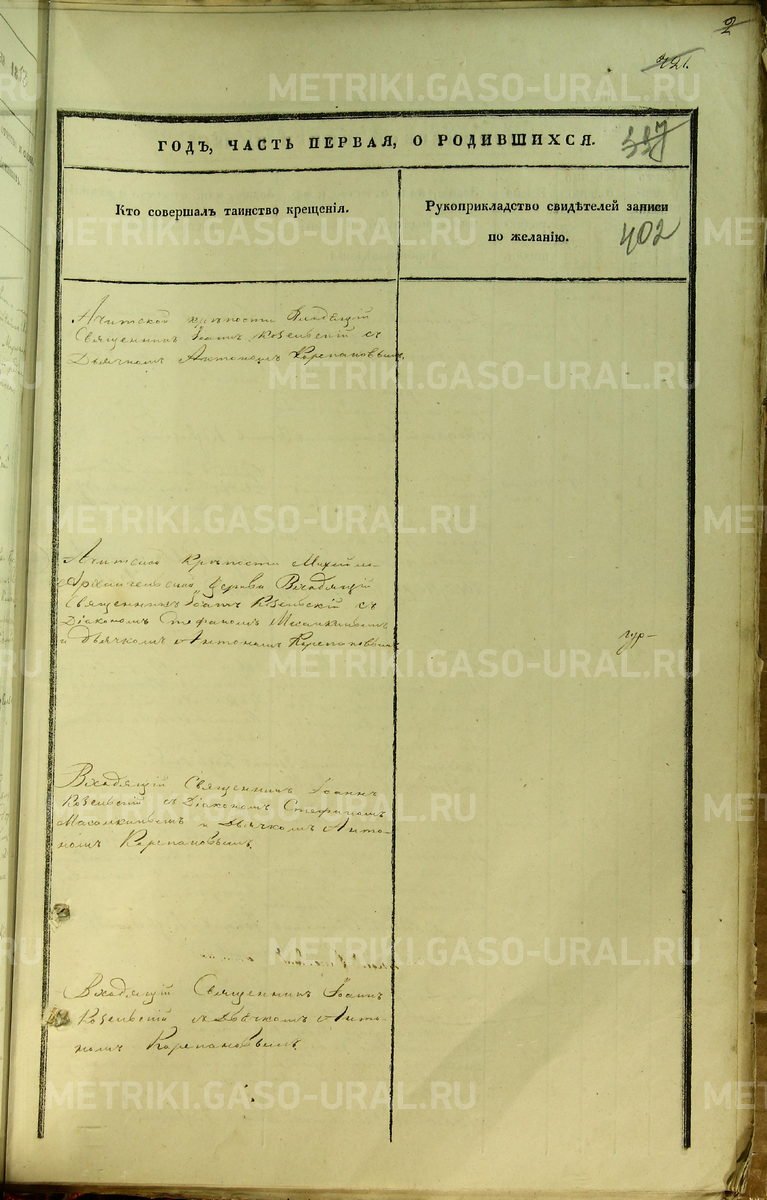 2
321.
ГОДЪ, ЧАСТЬ ПЕРВАЯ, О РОДИВШИХСЯ.
337
Кто совершалъ таинство крещенія.
Рукоприкладство свидѣтелей записи
по желанію.
402
Ачитской крѣпости Входящій
Священникъ Іоаннъ Козельскій съ
Дьячкомъ Антономъ Карепановымъ.
Ачитской Крѣпости Михайло
Архангельской Церкви Входящій
Священникъ Іоаннъ Козельскій съ
Діакономъ Стефаномъ
и Дьячкомъ Антономъ Карепановымъ
Входящій Священникъ Іоаннъ
Козельскій съ Діакономъ Стефаномъ
и Дьячкомъ Анто-
номъ Карепановымъ.
Входящій Священникъ Іоаннъ
Козельскій съ Дьячкомъ Анто-
номъ Карепановымъ.
METRIKI.GASO-URAL.RU